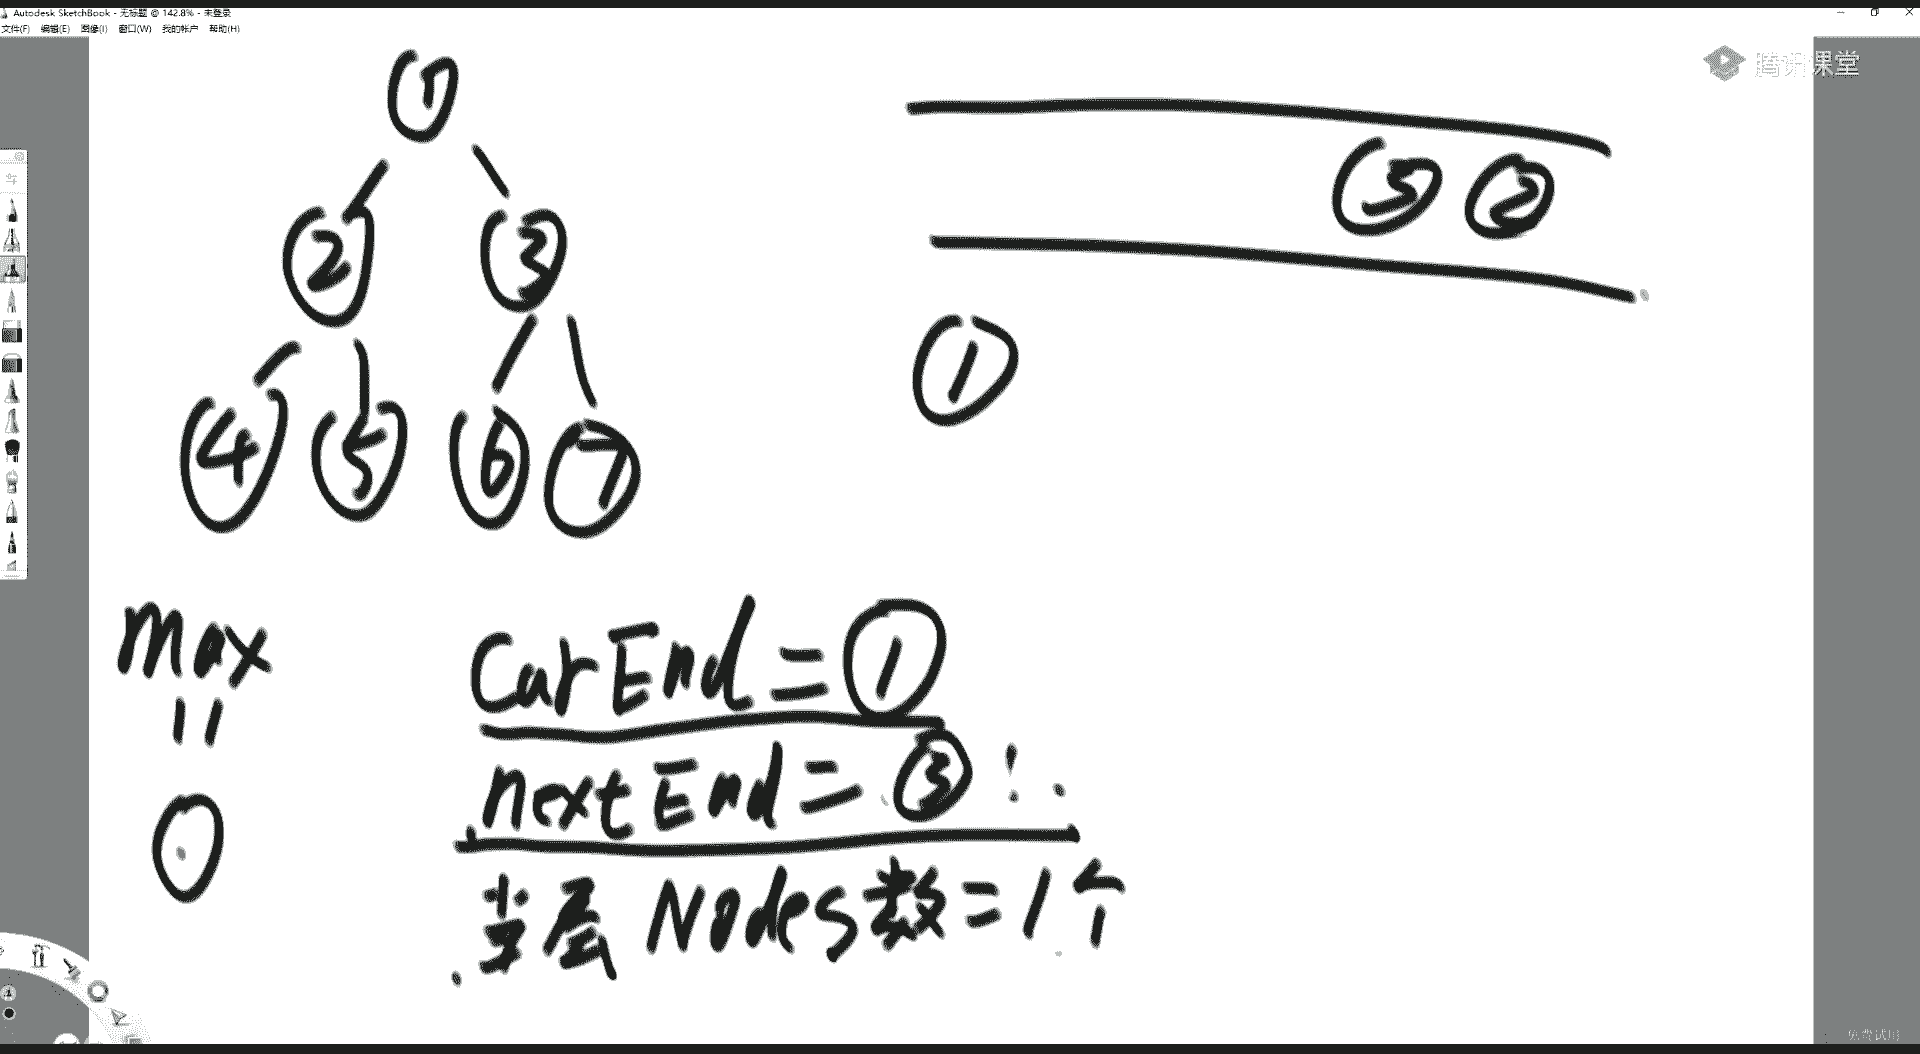 Autodesk SketchBook - 无标题 @ 142.8% - 未登录
文件(F) 编辑(E) 图像(I) 窗口(W) 我的帐户 帮助(H)
腾讯课堂
1
3 2
2 3
1
4 5 6 7
max
=
0
CurEnd = 1
nextEnd = 3
当层 Nodes数 = 1个
免费试用